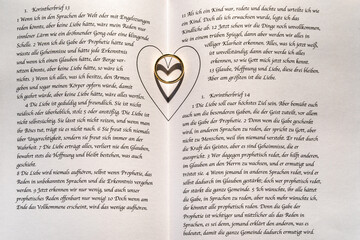 1. Korintherbrief 13
1 Wenn ich in den Sprachen der Welt oder mit Engelzungen
reden könnte, aber keine Liebe hätte, wäre mein Reden nur
sinnloser Lärm wie ein dröhnender Gong oder eine klingende
Schelle. 2 Wenn ich die Gabe der Prophetie hätte und
wüsste alle Geheimnisse und hätte jede Erkenntnis
und wenn ich einen Glauben hätte, der Berge versetzen
könnte, aber keine Liebe hätte, so wäre ich
nichts. 3 Wenn ich alles, was ich besitze, den Armen
geben und sogar meinen Körper opfern würde, damit
ich geehrt würde, aber keine Liebe hätte, wäre alles wertlos.
4 Die Liebe ist geduldig und freundlich. Sie ist nicht
neidisch oder überheblich, stolz 5 oder anstößig. Die Liebe ist
nicht selbstsüchtig. Sie lässt sich nicht reizen, und wenn man
ihr Böses tut, trägt sie es nicht nach. 6 Sie freut sich niemals
über Ungerechtigkeit, sondern sie freut sich immer an der
Wahrheit. 7 Die Liebe erträgt alles, verliert nie den Glauben,
bewahrt stets die Hoffnung und bleibt bestehen, was auch
geschieht.
8 Die Liebe wird niemals aufhören, selbst wenn Prophetie, das
Reden in unbekannten Sprachen und die Erkenntnis vergehen
werden. 9 Jetzt erkennen wir nur wenig, und auch unser
prophetisches Reden offenbart nur wenig! 10 Doch wenn am
Ende das Vollkommene erscheint, wird das wenige aufhören.
11 Als ich ein Kind war, redete und dachte und urteilte ich wie
ein Kind. Doch als ich erwachsen wurde, legte ich das
Kindliche ab. 12 Jetzt sehen wir die Dinge noch unvollkommen,
wie in einem trüben Spiegel, dann aber werden wir alles in
völliger Klarheit erkennen. Alles, was ich jetzt weiß,
ist unvollständig; dann aber werde ich alles
erkennen, so wie Gott mich jetzt schon kennt.
13 Glaube, Hoffnung und Liebe, diese drei bleiben.
Aber am größten ist die Liebe.
1. Korintherbrief 14
1 Die Liebe soll euer höchstes Ziel sein. Aber bemüht euch
auch um die besonderen Gaben, die der Geist zuteilt, vor allem
um die Gabe der Prophetie. 2 Denn wenn die Gabe geschenkt
wird, in anderen Sprachen zu reden, der spricht zu Gott, aber
nicht zu Menschen, weil ihn niemand versteht. Er redet durch
die Kraft des Geistes, aber es sind Geheimnisse, die er
ausspricht. 3 Wer dagegen prophetisch redet, der hilft anderen,
im Glauben am Herrn zu wachsen, und er ermutigt und
tröstet sie. 4 Wenn jemand in anderen Sprachen redet, wird er
selbst dadurch im Glauben gestärkt, wer jedoch prophetisch redet,
der stärkt die ganze Gemeinde. 5 Ich wünschte, ihr alle hättet
die Gabe, in Sprachen zu reden, aber noch mehr wünschte ich,
ihr könntet alle prophetisch reden. Denn die Gabe der
Prophetie ist wichtiger und nützlicher als das Reden in
Sprachen, es sei denn, jemand erklärt den anderen, was es
bedeutet, damit die ganze Gemeinde dadurch ermutigt wird.